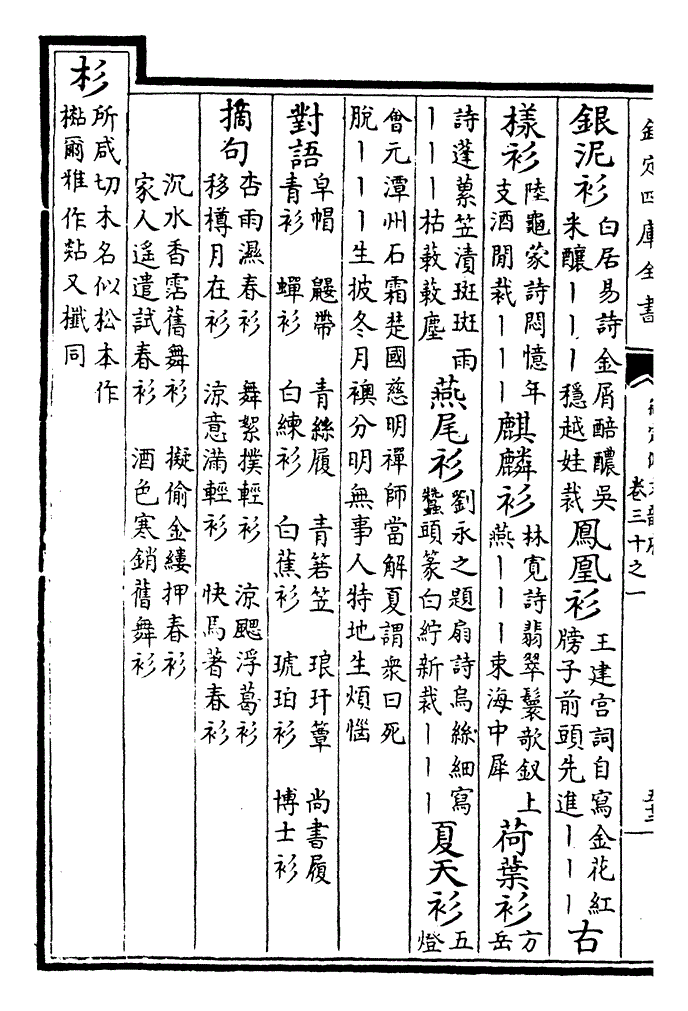 欽定四庫全書
卷三十之一
銀泥衫
白居易詩金屑醅醲吳
米釀丨丨丨穩越娃裁
鳳凰衫
王建宮詞自寫金花紅
牓子前頭先進丨丨丨
古
樣衫
陸龜蒙詩悶憶年
支酒閒裁丨丨丨
麒麟衫
林寛詩翡翠鬟欹釵上
燕丨丨丨東海中犀
荷葉衫
方
岳
詩蓬藁笠漬斑斑雨
丨丨丨枯蔌蔌塵
燕尾衫
劉永之題扇詩烏絲細寫
蠶頭篆白紵新裁丨丨丨
夏天衫
五
燈
會元潭州石霜楚國慈明禪師當解夏謂衆曰死
脫丨丨丨生披冬月襖分明無事人特地生煩惱
對語
皁帽 鼴帶 青絲履 青箬笠 琅玕簟 尚書履
青衫 蟬衫 白練衫 白蕉衫 琥珀衫 博士衫
摘句
杏雨濕春衫 舞絮撲輕衫 涼颸浮葛衫
移樽月在衫 涼意滿輕衫 快馬著春衫
沉水香霑舊舞衫 擬偷金縷押春衫
家人遙遣試春衫 酒色寒銷舊舞衫
杉
所咸切木名似松本作
檆爾雅作煔又櫼同